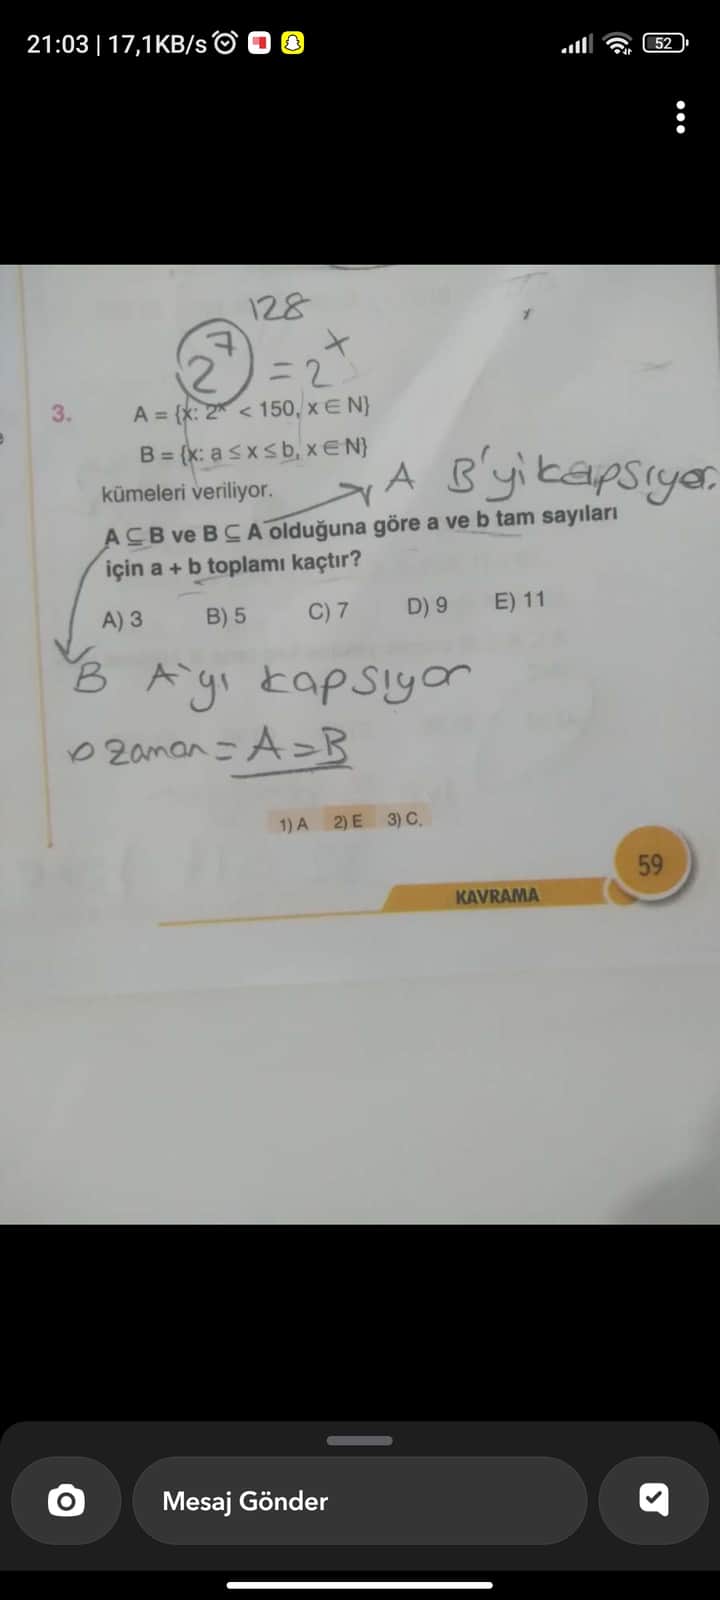 21:03 | 17,1KB/s
52
128
2⁷ = 2ˣ
3. A = {x: 2ˣ < 150, x ∈ N}
B = {x: a ≤ x ≤ b, x ∈ N}
kümeleri veriliyor.
A B'yi kapsıyor.
A ⊆ B ve B ⊆ A olduğuna göre a ve b tam sayıları
için a + b toplamı kaçtır?
A) 3 B) 5 C) 7 D) 9 E) 11
B A'yı kapsıyor
o zaman = A = B
1) A 2) E 3) C
59
KAVRAMA
Mesaj Gönder